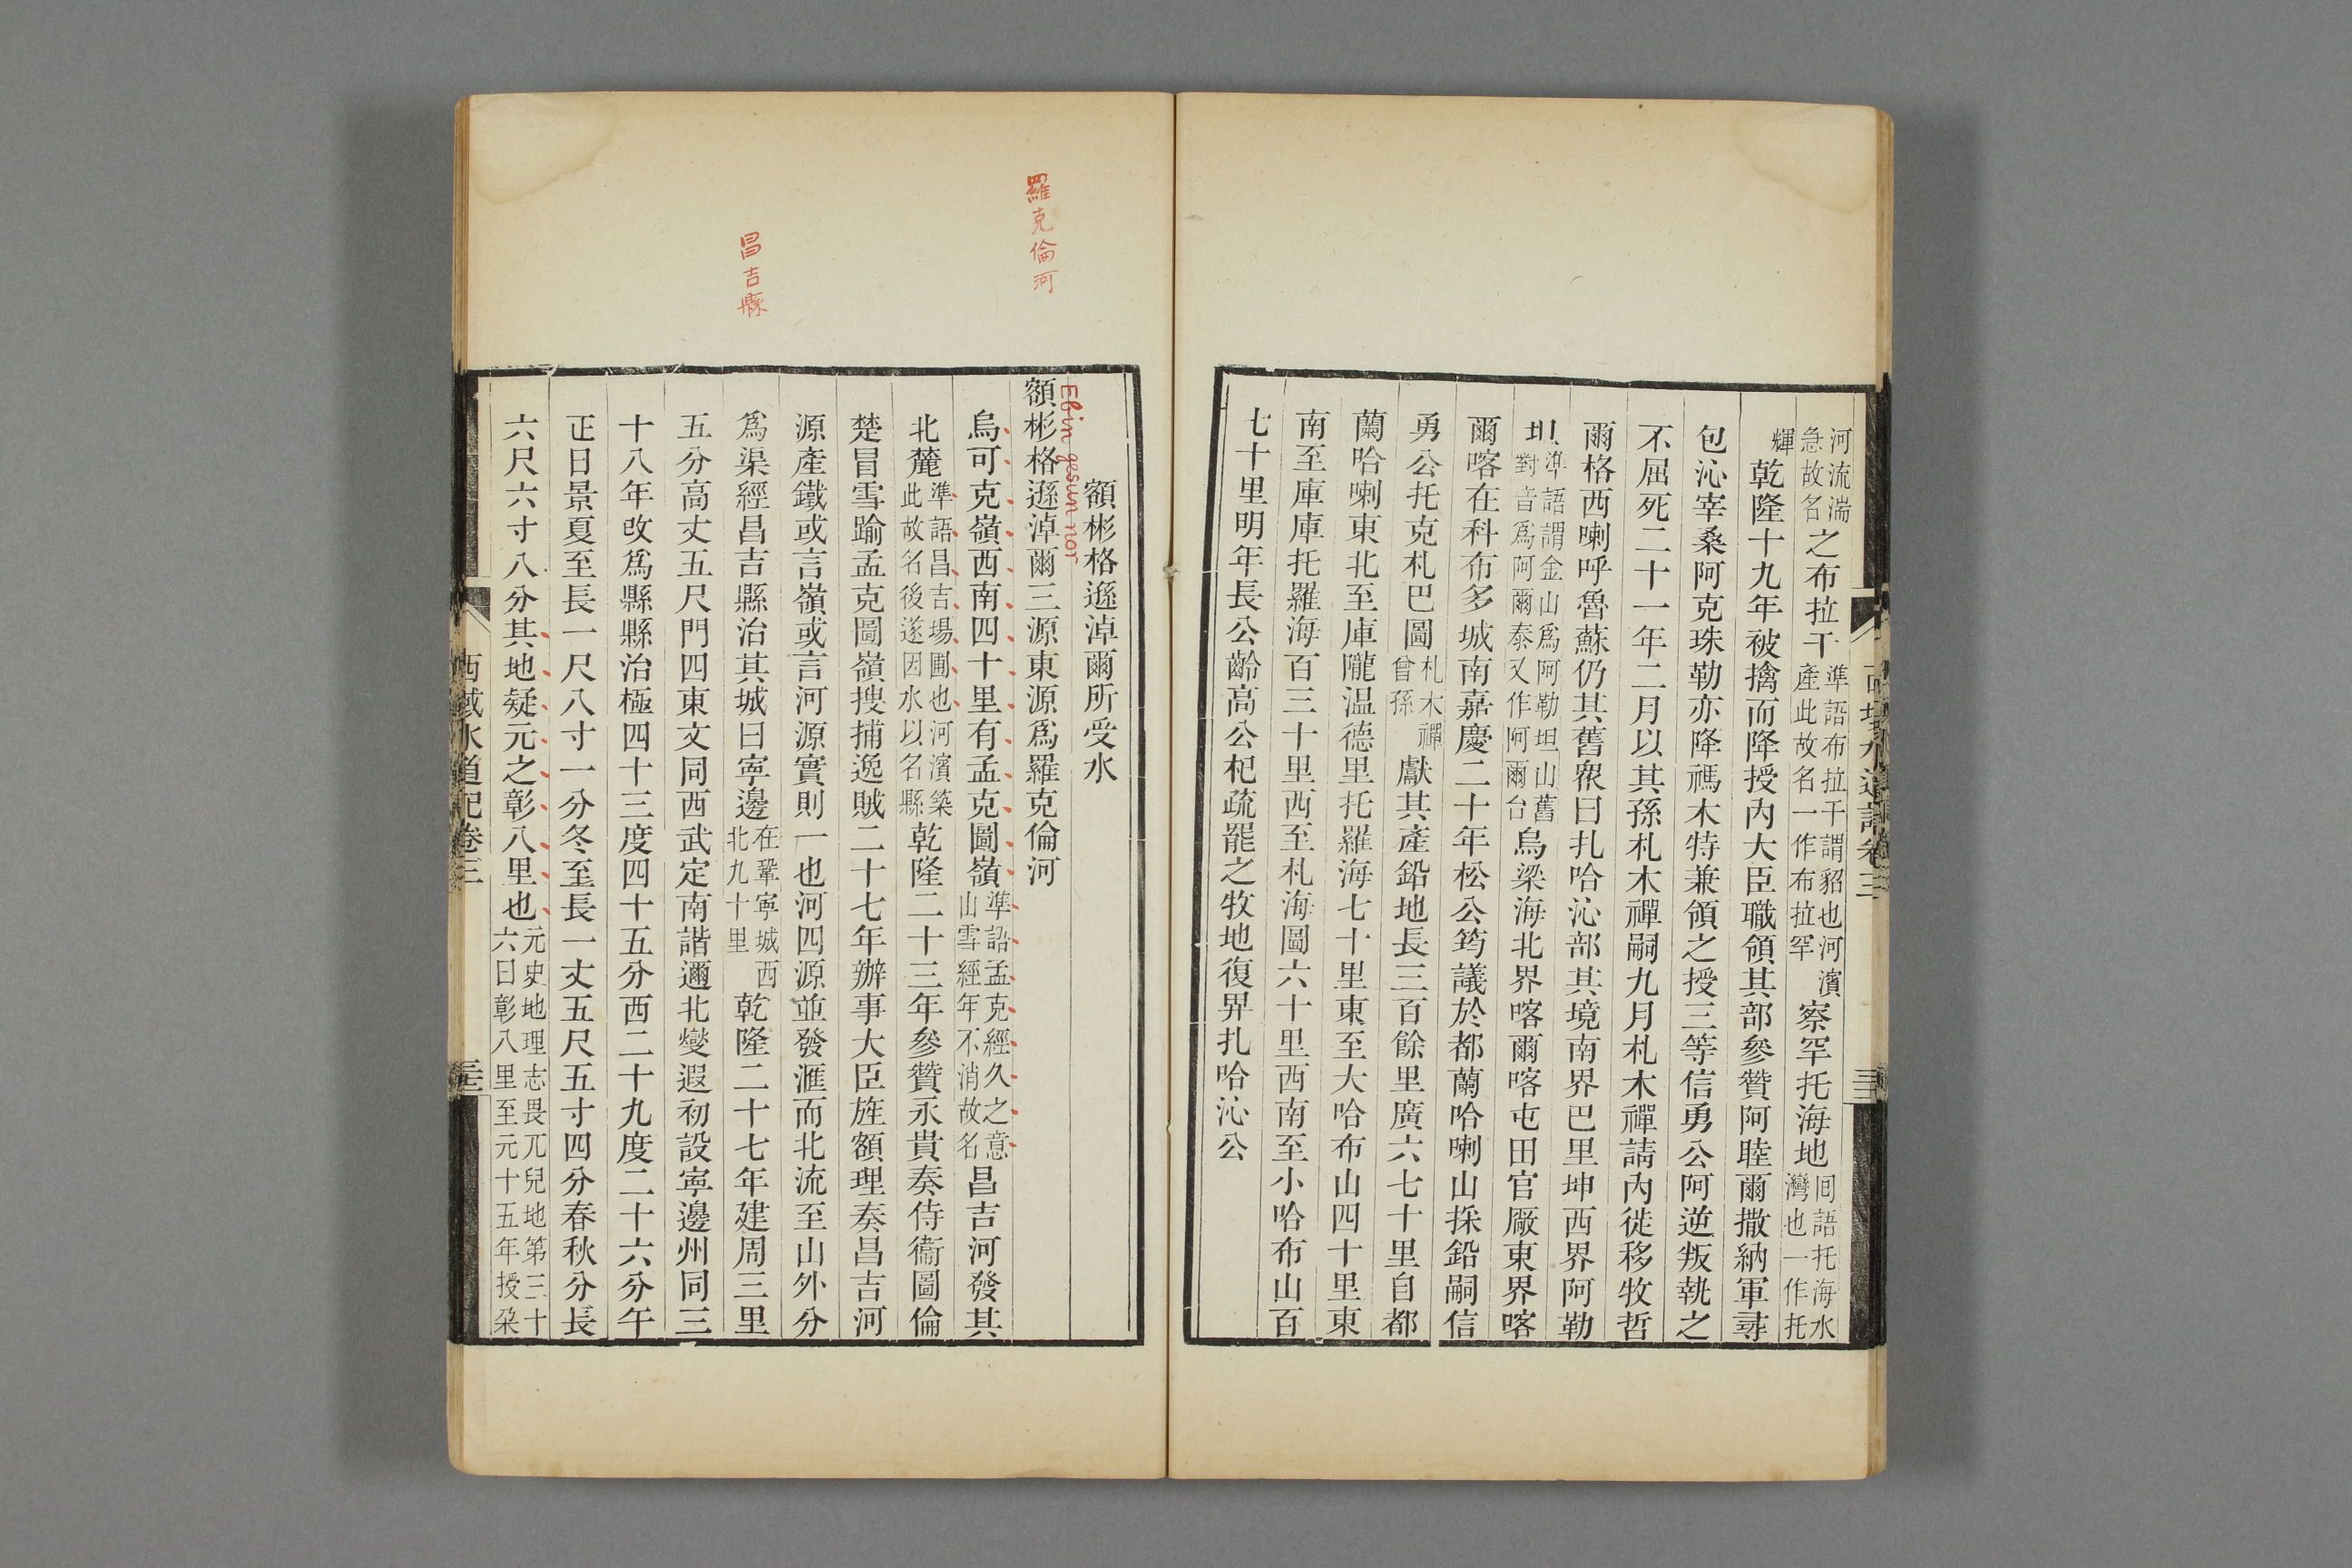 河流湍
急故名
之布拉干
準語布拉干謂貂也河濱
產此故名一作布拉罕
察罕托海地
囘語托海水
灣也一作托
輝
乾隆十九年被擒而降授內大臣職領其部參贊阿睦爾撒納軍尋
包沁宰桑阿克珠勒亦降禡木特兼領之授三等信勇公阿逆叛執之
不屈死二十一年二月以其孫札木禪嗣九月札木禪請內徙移牧哲
爾格西喇呼魯蘇仍其舊衆曰扎哈沁部其境南界巴里坤西界阿勒
坦
準語謂金山爲阿勒坦山舊
對音爲阿爾泰又作阿爾台
烏梁海北界喀爾喀屯田官厰東界喀
爾喀在科布多城南嘉慶二十年松公筠議於都蘭哈喇山採鉛嗣信
勇公托克札巴圖
札木禪
曾孫
獻其產鉛地長三百餘里廣六七十里自都
蘭哈喇東北至庫隴温德里托羅海七十里東至大哈布山四十里東
南至庫庫托羅海百三十里西至札海圖六十里西南至小哈布山百
七十里明年長公齡高公杞疏罷之牧地復畀扎哈沁公
西域水道記卷三
額彬格遜淖爾所受水
Ebin gesun nor
羅克倫河
額彬格遜淖爾三源東源爲羅克倫河
烏可克嶺西南四十里有孟克圖嶺
準語孟克經久之意
山雪經年不消故名
昌吉河發其
北麓
準語昌吉場圃也河濱築
此故名後遂因水以名縣
乾隆二十三年參贊永貴奏侍衞圖倫
楚冒雪踰孟克圖嶺搜捕逸賊二十七年辦事大臣旌額理奏昌吉河
源產鐵或言嶺或言河源實則一也河四源並發滙而北流至山外分
昌吉縣
爲渠經昌吉縣治其城曰寧邊
在鞏寧城西
北九十里
乾隆二十七年建周三里
五分高丈五尺門四東文同西武定南諧邇北燮遐初設寧邊州同三
十八年改爲縣縣治極四十三度四十五分西二十九度二十六分午
正日景夏至長一尺八寸一分冬至長一丈五尺五寸四分春秋分長
六尺六寸八分其地疑元之彰八里也
元史地理志畏兀兒地第三十
六曰彰八里至元十五年授朶
西域水道記卷三